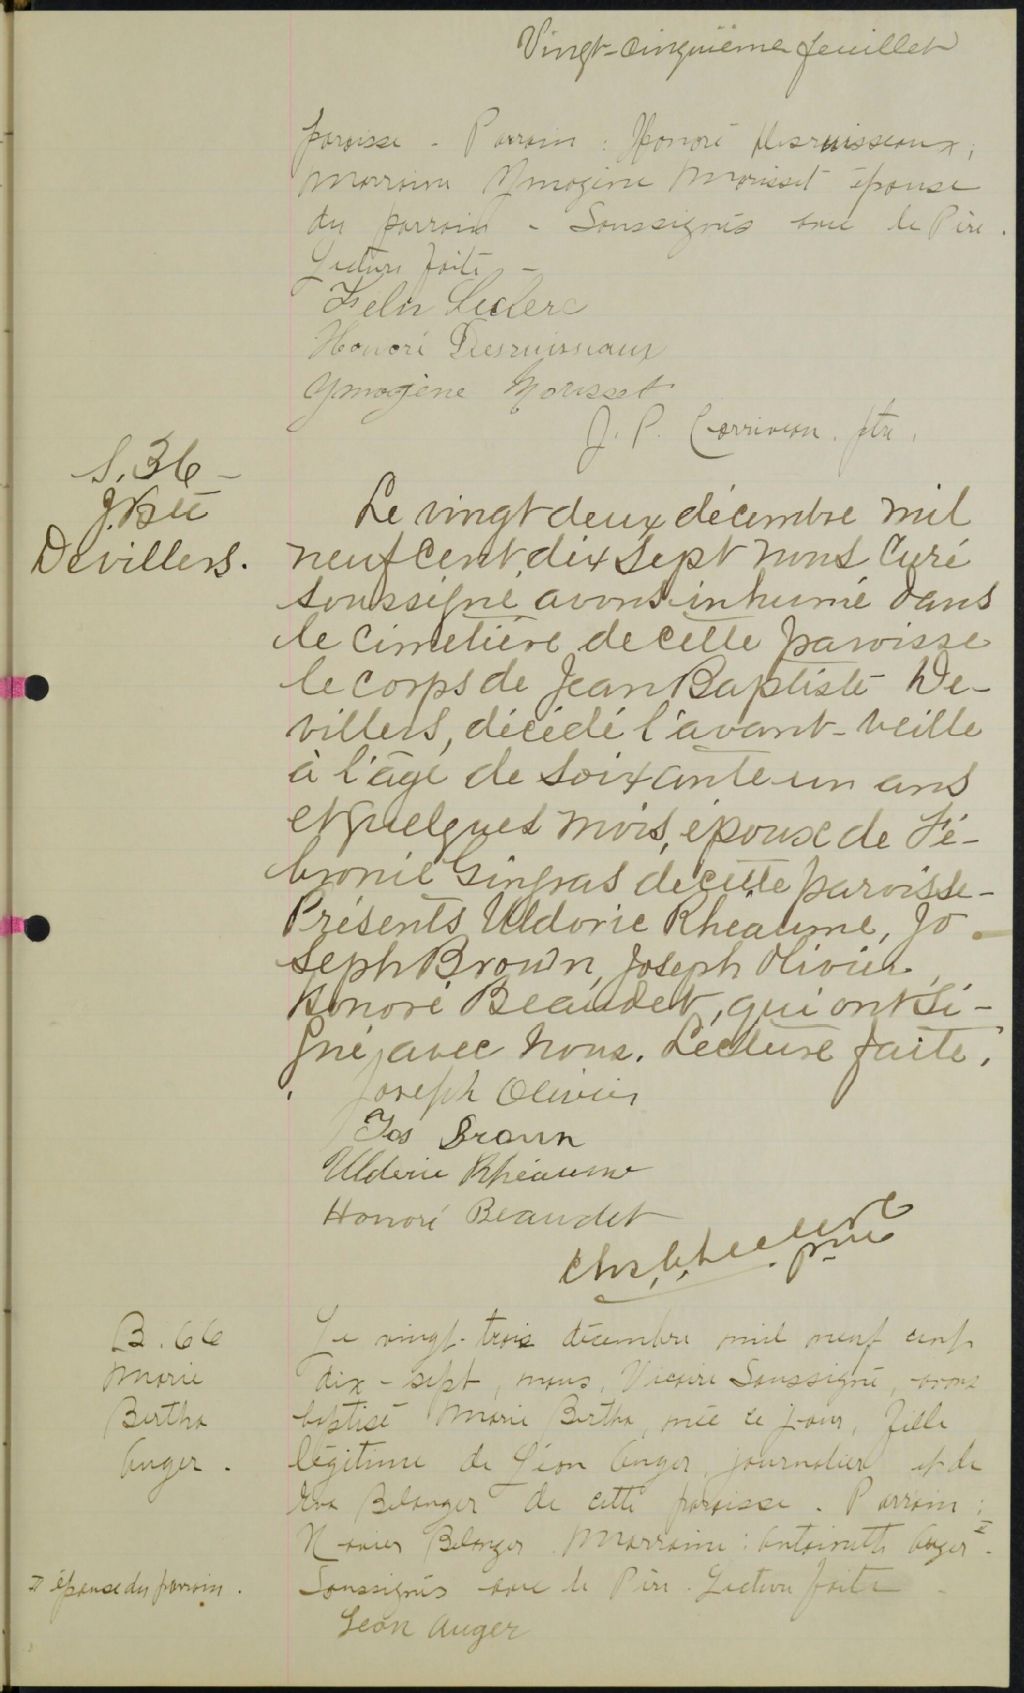 Vingt-cinquième feuillet
paroisse - Parrain : Honoré Desruisseaux,
Marraine Ymogène Morisset épouse
du parrain - Soussignés avec le Père.
Lecture faite -
Félix Leclerc
Honoré Desruisseaux
Ymogène Morisset
J. P. Corriveau, ptre.
S. 36 -
J. Bte
Devillers.
Le vingt deux décembre mil
neuf cent dix sept nous Curé
soussigné, avons inhumé dans
le cimetière de cette paroisse
le corps de Jean Baptiste De-
villers, décédé l'avant-veille
à l'âge de soixante un ans
et quelques mois, époux de Fé-
bronie Gingras de cette paroisse -
Présents Ulderic Rhéaume, Jo
seph Brown, Joseph Olivier,
Honoré Beaudet, qui ont si-
gné avec nous. Lecture faite.
Joseph Olivier
Jos Brown
Ulderic Rhéaume
Honoré Beaudet
ptre
B. 66
Marie
Bertha
Auger.
Le vingt-trois décembre mil neuf cent
dix-sept, nous, Vicaire Soussigné, avons
baptisé Marie Bertha, née ce jour, fille
légitime de Léon Auger, journalier et de
Eva Belanger de cette paroisse. Parrain :
Xavier Belanger Marraine : Antoinette Auger
Soussignés avec le Père. Lecture faite -
épouse du parrain.
Léon Auger